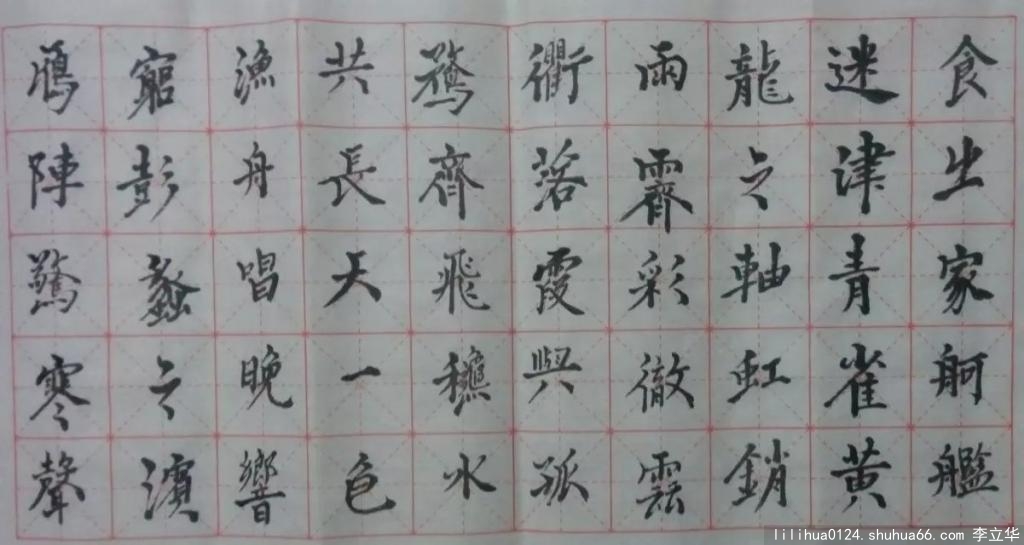 食之家舸艦
迷津青雀黄
龍之軸虹銷
雨霽彩徹雲
衢落霞與孤
鶩齊飛龝水
共長天一色
漁舟唱晚響
窮彭蠡之濱
鴈陣驚寒聲
lilihua0124.shuhua66.com 李立华